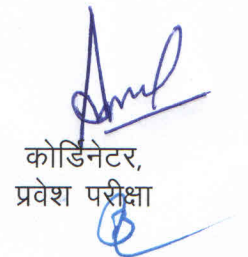 कोर्डिनेटर,
प्रवेश परीक्षा